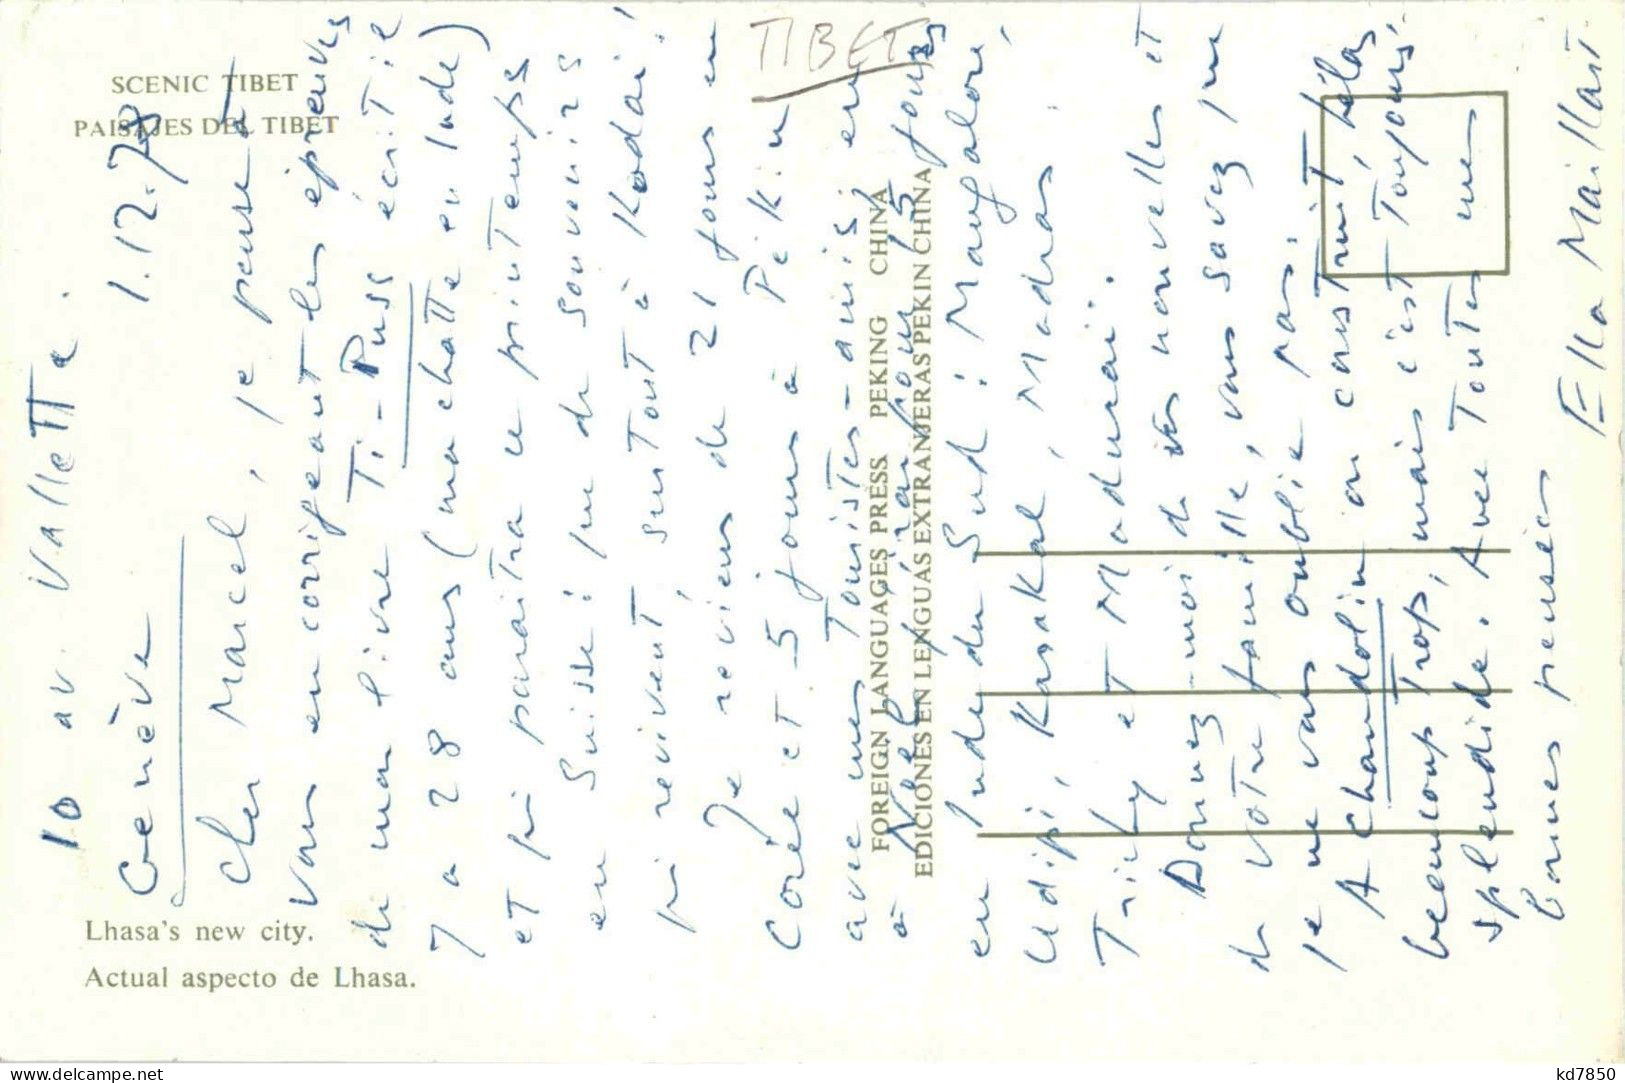 TIBET
SCENIC TIBET
PAISAJES DEL TIBET
Lhasa's new city.
Actual aspecto de Lhasa.
FOREIGN LANGUAGES PRESS PEKING CHINA
EDICIONES EN LENGUAS EXTRANJERAS PEKIN CHINA
10 av. Vallette.
Genève 1.12.78
Cher Marcel, je pense à
vous en corrigeant les épreuves
de mon livre Ti-Puss écrit il
y a 28 ans (ma chatte en Inde)
et qui paraîtra ce printemps
en Suisse: que de souvenirs
qui revivent, surtout à Kodai!
Je reviens de 21 jours en
Corée et 5 jours à Pékin
avec mes touristes-amis; et
à Noël, irai pour 15 jours
en Inde du Sud: Mangalore,
Udipi, Karakal, Madras,
Trichy et Madurai.
Donnez-moi de vos nouvelles et
de votre famille, vous savez que
je ne vous oublie pas.
A Chandolin on construit, hélas
beaucoup trop, mais c'est toujours
splendide. Avec toutes mes
bonnes pensées
Ella Maillart
kd7850